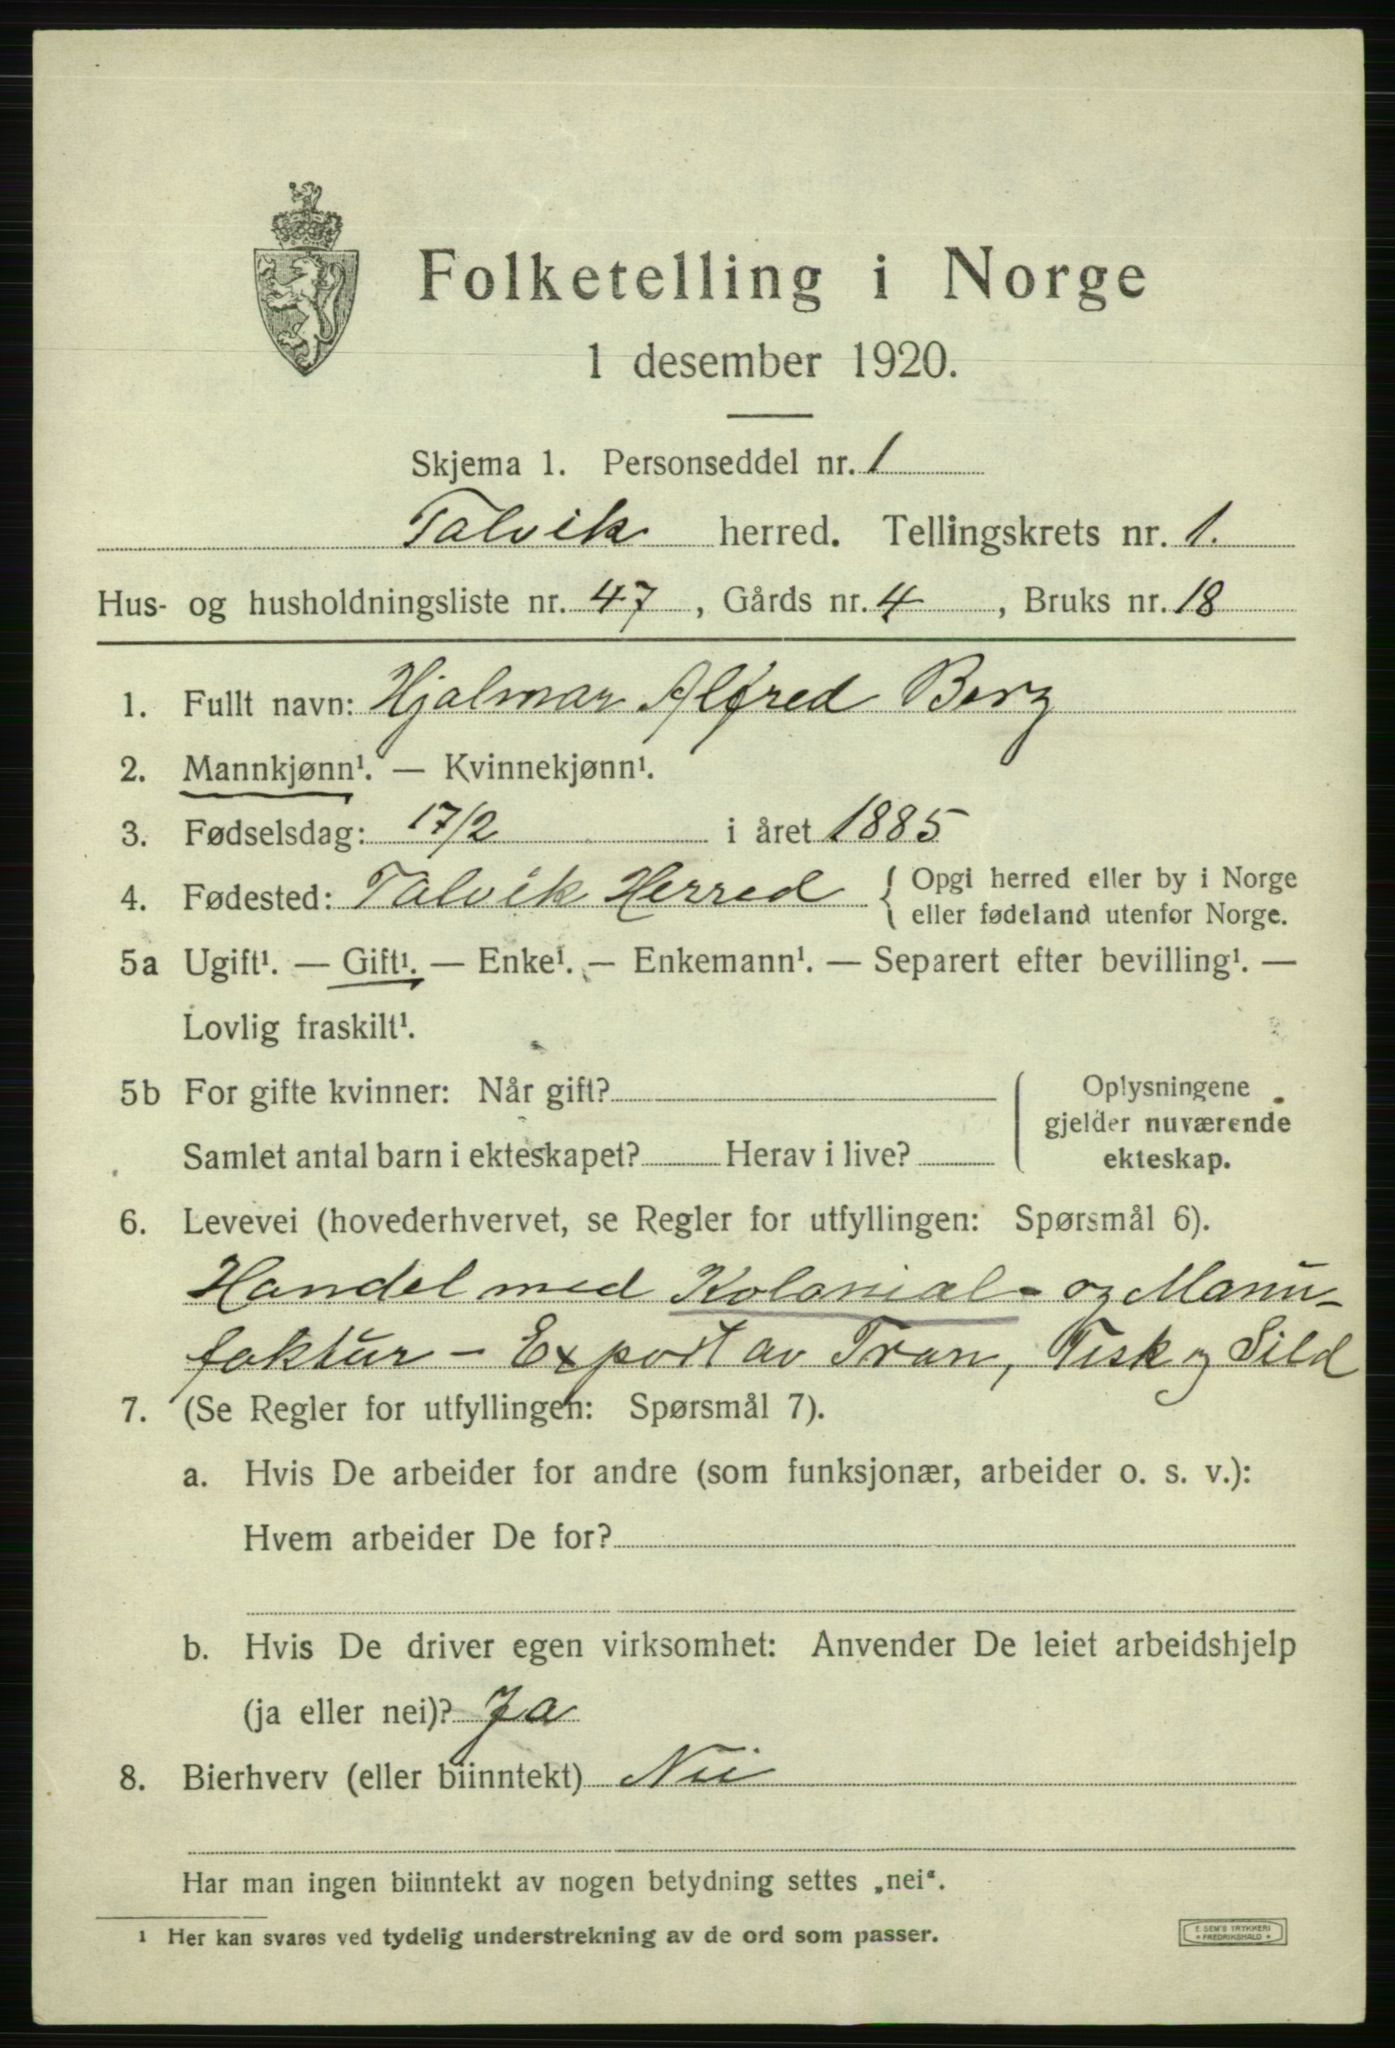 Folketelling i Norge
1 desember 1920.
Skjema 1. Personseddel nr. 1
Talvik herred. Tellingskrets nr. 1.
Hus- og husholdningsliste nr. 47, Gårds nr. 4, Bruks nr. 18
1. Fullt navn: Hjalmar Alfred Berg
2. Mannkjønn¹. — Kvinnekjønn¹.
3. Fødselsdag: 17/2 i året 1885
4. Fødested: Talvik Herred { Opgi herred eller by i Norge
eller fødeland utenfor Norge.
5a Ugift¹. — Gift¹. — Enke¹. — Enkemann¹. — Separert efter bevilling¹. —
Lovlig fraskilt¹.
5b For gifte kvinner: Når gift?
Samlet antal barn i ekteskapet? Herav i live?
Oplysningene
gjelder nuværende
ekteskap.
6. Levevei (hovederhvervet, se Regler for utfyllingen: Spørsmål 6).
Handel med Kolonial- og Manu-
faktur - Export av Tran, Fisk og Sild
7. (Se Regler for utfyllingen: Spørsmål 7).
a. Hvis De arbeider for andre (som funksjonær, arbeider o. s. v.):
Hvem arbeider De for?
b. Hvis De driver egen virksomhet: Anvender De leiet arbeidshjelp
(ja eller nei)? Ja
8. Bierhverv (eller biinntekt) Nei
Har man ingen biinntekt av nogen betydning settes „nei".
¹ Her kan svares ved tydelig understrekning av de ord som passer.
E. SEM'S TRYKKERI
* FREDRIKSHALD *